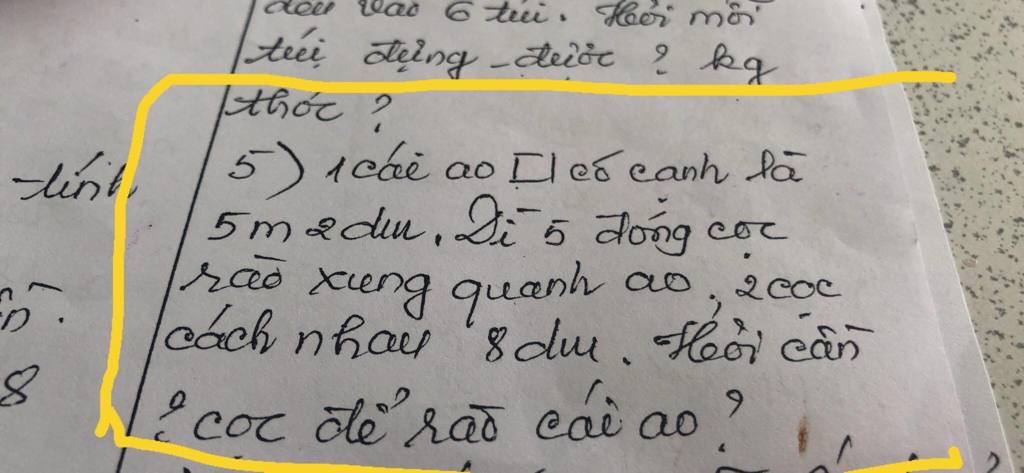 đều vào 6 túi. Hỏi mỗi
túi đựng được ? kg
thóc ?
5) 1 cái ao □ có cạnh là
5m 2dm. Dì 5 đóng cọc
rào xung quanh ao, 2 cọc
cách nhau 8dm. Hỏi cần
? cọc để rào cái ao ?
tính
8